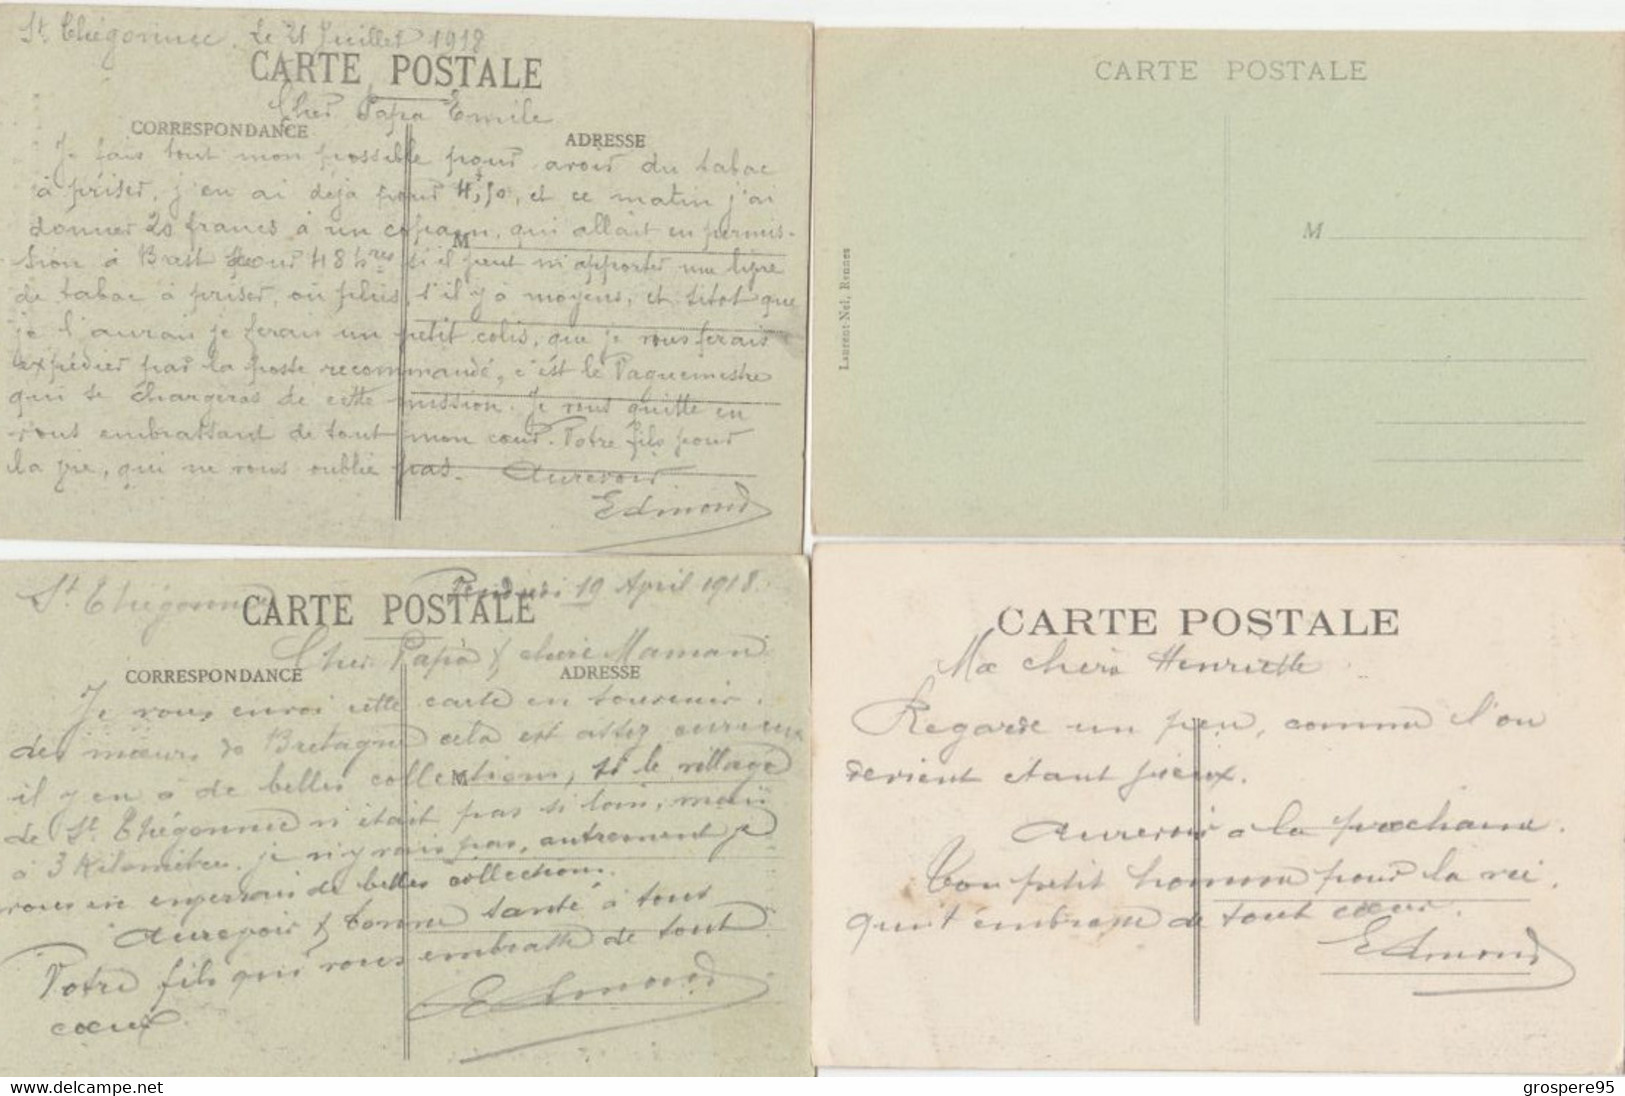 St Thégonnec, Le 21 Juillet 1918
CARTE POSTALE
Cher Papa Emile
CORRESPONDANCE
ADRESSE
Je fais tout mon possible pour avoir du tabac
à priser, j'en ai déjà pour 4,50, et ce matin j'ai
donner 20 francs à un copain, qui allait en permis-
M
sion à Brest pour 48 hres si il peut m'apporter une livre
de tabac à priser, ou plus, s'il y a moyens, et sitot que
je l'aurai je ferais un petit colis, que je vous ferais
expédier par la poste recommandé, c'ést le Vaguemestre
qui se chargeras de cette mission. Je vous quitte en
vous embrassant de tout mon cœur. Votre fils pour
la vie, qui ne vous oublie pas.
Aurevoir
Edmond
CARTE POSTALE
M
Laurent-Nel, Rennes
St Thégonnec Vendredi 19 April 1918.
CARTE POSTALE
Cher Papa & chère Maman
CORRESPONDANCE
ADRESSE
Je vous envoi cette carte en souvenir
des mœurs de Bretagne cela est assez curieux
il y en a de belles collections, si le village
M
de St Thégonnec n'était pas si loin, mais
à 3 Kilomètres je n'y vais pas, autrement je
vous en enverrais de belles collections.
Aurevoir & bonne santé à tous
Votre fils qui vous embrasse de tout
cœur
Edmond
CARTE POSTALE
Ma chère Henriette
Regarde un peu, comme l'on
devient étant vieux.
Aurevoir a la prochaine.
Ton petit homme pour la vie,
qui t'embrasse de tout cœur.
Edmond
www.delcampe.net
grospere95